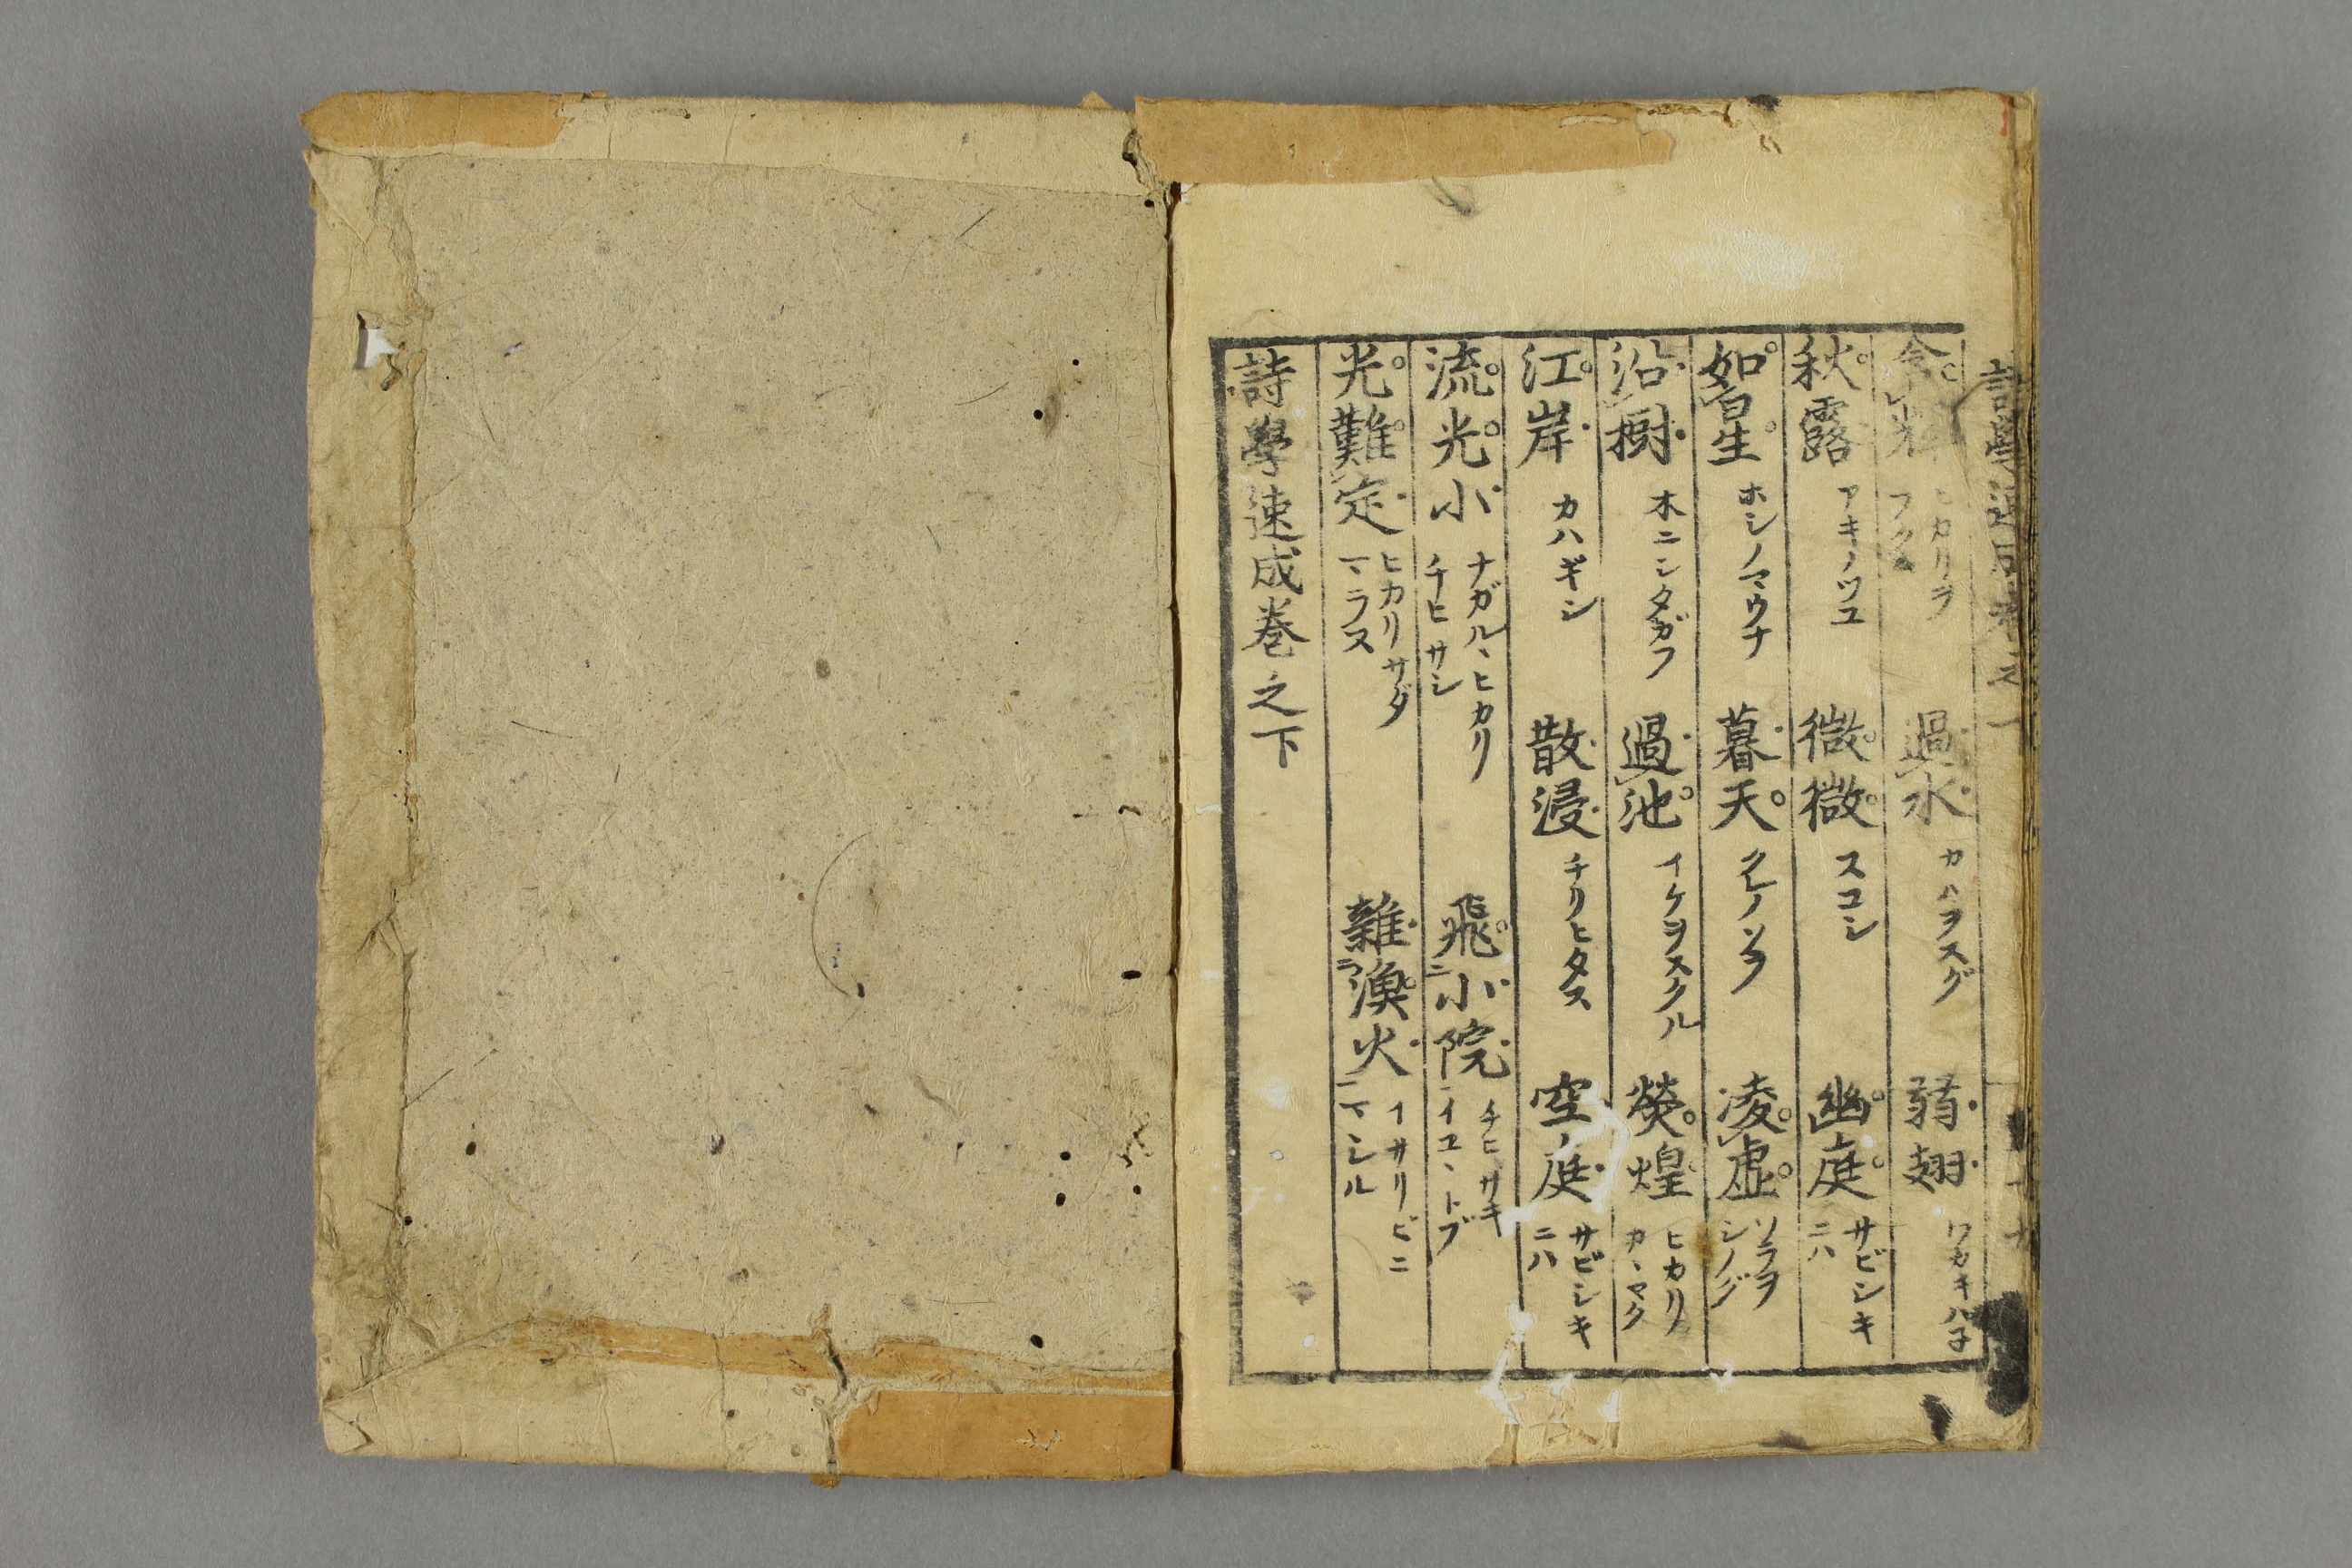 含輝 ヒカリヲフクム 過水 カハヲスグ 弱翅 ワカキハネ
秋露 アキノツユ 微微 スコシ 幽庭 サビシキニハ
如星 ホシノマウナ 暮天 クレノソラ 凌虚 ソラヲシノグ
沿樹 木ニシタガフ 過池 イケヲスクル 熒煌 ヒカリカヽマク
江岸 カハギシ 散浸 チリヒタス 空庭 サビシキニハ
流光小 ナガルヽヒカリチヒサシ 飛小院 チヒサキイヱヽトブ
光難定 ヒカリサダマラス 雜漁火 イサリビニマシル
詩學速成巻之下